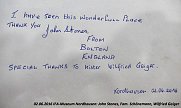 I HAVE SEEN THIS WONDERFULL PLACE
THANK YOU John Stones
FROM
BOLTON
ENGLAND
SPECIAL THANKS TO HERR Wilfried
Nordhausen 02.06.2016
02.06.2016 KTA-Museum Nordhausen: John Stones, Fam. Schlösermann, Wilfried